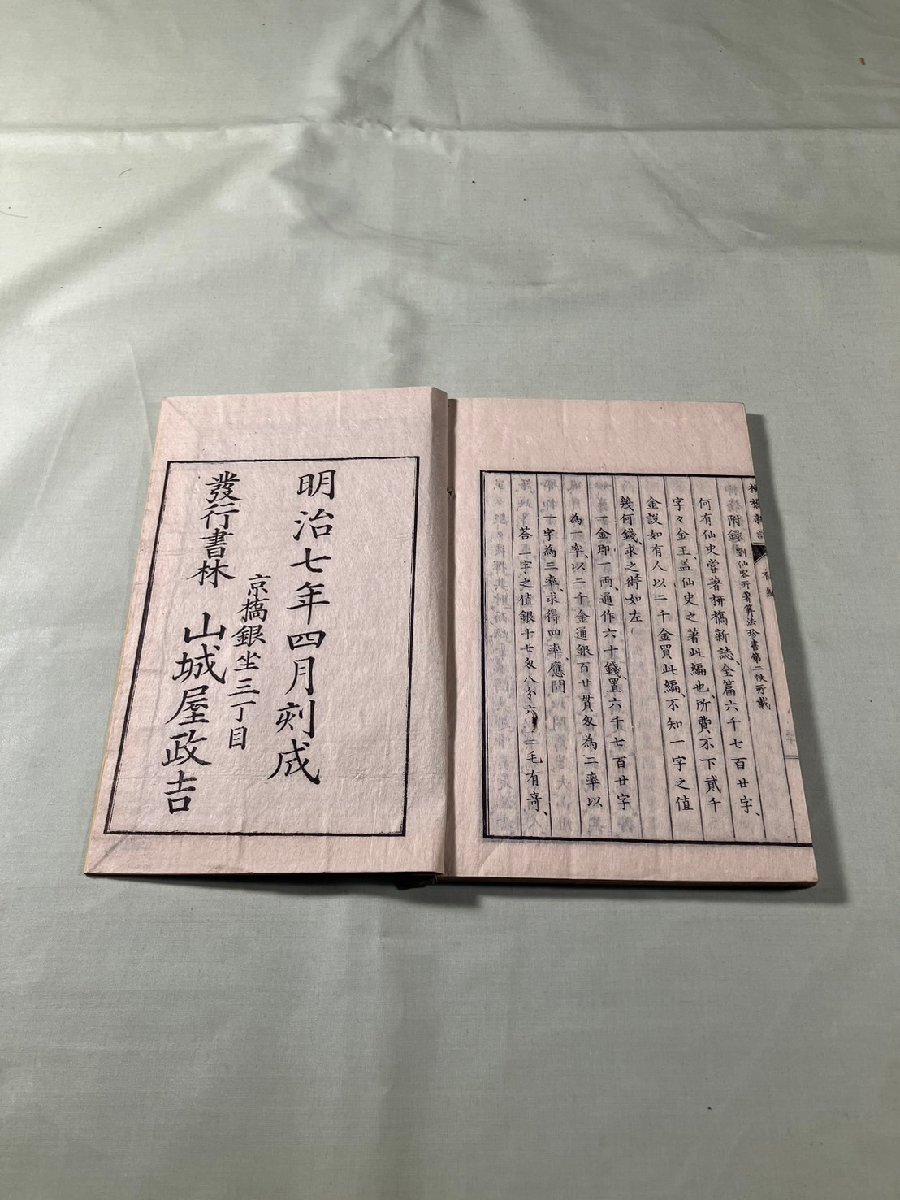 柳橋新誌
附錄 劉仙客所著算法珍書第二帙所載
何有仙史嘗著柳橋新誌、全篇六千七百廿字、
字々金玉、蓋仙史之著此編也、所費不下貳千
金、設如有人以二千金買此編、不知一字之值
幾何錢、求之術如左
一金即一兩、通作六十錢、置六千七百廿字
為一率、以二千金通銀百廿貫匁為二率、以
一字為三率、求得四率、應問
答一字之值銀十七匁八分六 毛有奇、
明治七年四月刻成
京橋銀坐三丁目
發行書林 山城屋政吉